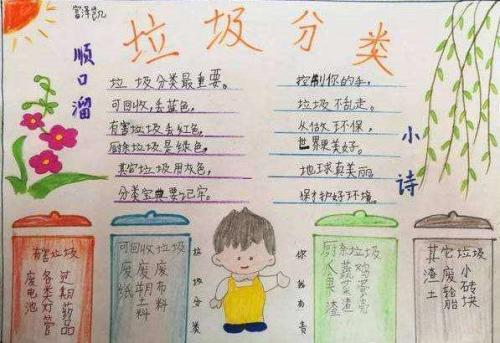 富泽凯
垃圾分类
顺口溜
垃圾分类最重要。
可回收,丢蓝色,
有害垃圾丢红色,
厨余垃圾是绿色,
其它垃圾用灰色,
分类宝典要记牢。
小诗
控制你的手,
垃圾不乱走。
从做环保,
世界更美好。
地球真美丽
保护好环境。
有害垃圾
过期药品
各类灯管
废电池
可回收垃圾
废布料
废塑料
废纸
垃圾分类
你我有责
厨余垃圾
鸡蛋壳
蔬菜渣
瓜果
其它垃圾
小砖块
废轮胎
渣土